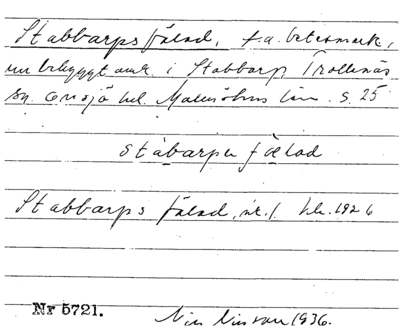 Stabbarps fälad, f.d. betesmark,
nu bebyggt omr. i Stabbarp Trollenäs
sn. Onsjö hd. Malmöhus län. S. 25
stábarpu fǽlad
Stabbarps fälad,
Nr 5721.
Nils Nilsson 1936.